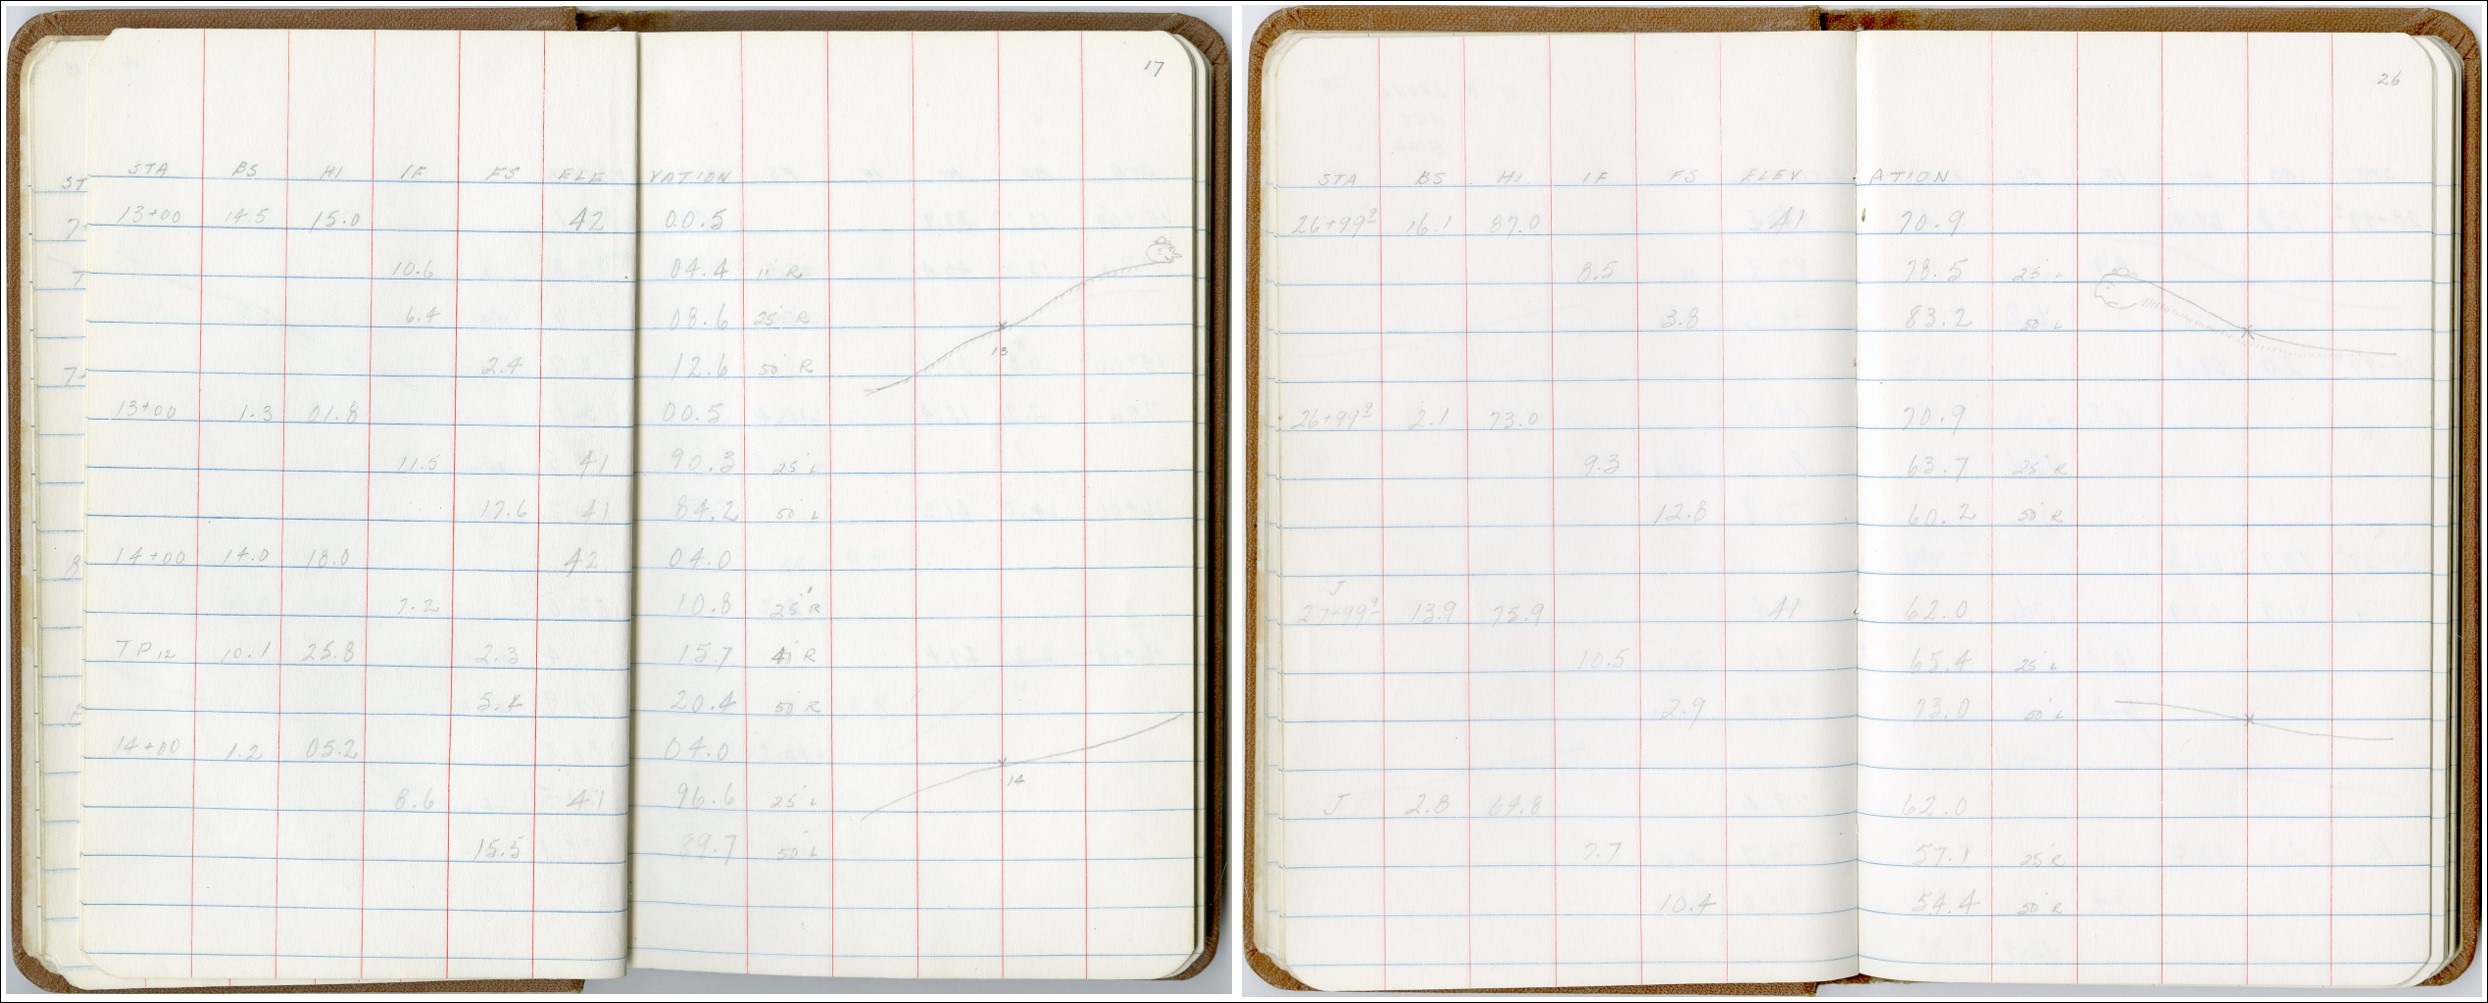 17
STA BS HI IF FS ELE VATION
13+00 14.5 15.0 42 00.5
10.6 04.4 11 R
6.4 08.6 25' R
2.4 12.6 50' R
13
13+00 1.3 01.8 00.5
11.5 41 90.3 25' L
17.6 41 84.2 50' L
14+00 14.0 18.0 42 04.0
7.2 10.8 25' R
TP12 10.1 25.8 2.3 15.7 R
5.4 20.4 50' R
14+00 1.2 05.2 04.0
14
8.6 41 96.6 25' L
15.5 89.7 50' L
ST
7
7
7
8
26
STA BS HI IF FS ELEV ATION
26+99⁹ 16.1 87.0 41 70.9
8.5 78.5 25' L
3.8 83.2 50' L
26+99⁹ 2.1 73.0 70.9
9.3 63.7 25' R
12.8 60.2 50' R
J
27+99⁹ 13.9 75.9 41 62.0
10.5 65.4 25' L
2.9 73.0 50' L
J 2.8 64.8 62.0
7.7 57.1 25' R
10.4 54.4 50' R